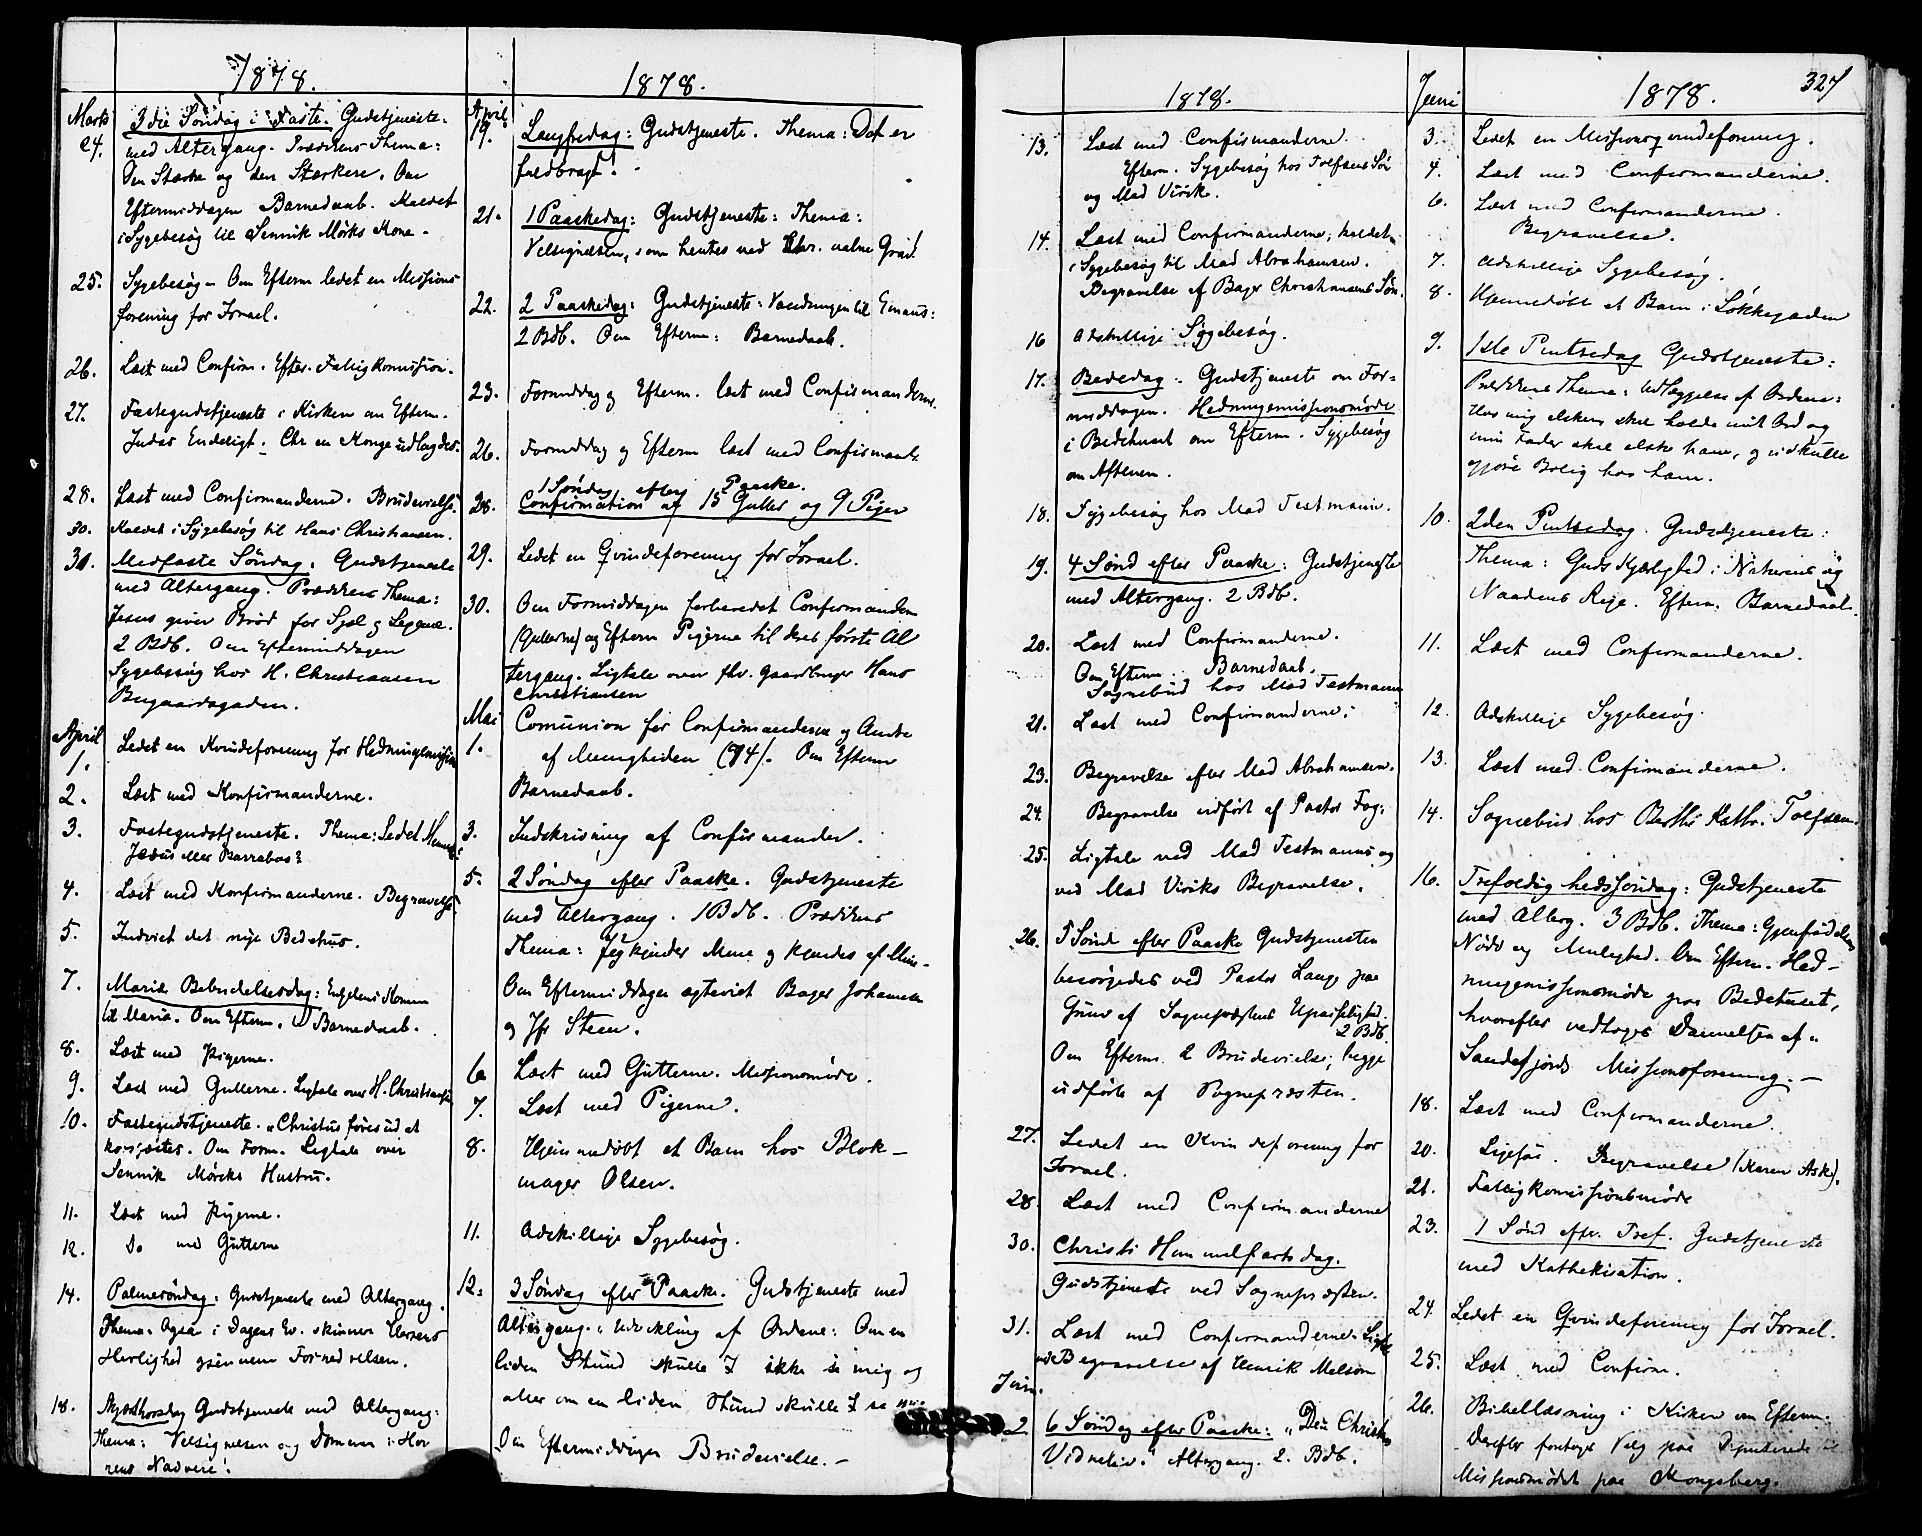 1878.
Marts
24. 3die Søndag i Faste. Gudstjeneste
med Altergang. Prædikens Thema:
Den Stærke og den Stærkere. Om
Eftermiddagen Barnedaab. Kaldet
i Sygebesøg til Sennik Mørks Kone.
25. Sygebesøg - Om Efterm ledet en Missions
forening for Israel.
26. Læst med Confirm. Efter. Fattigkomission.
27. Fastegudstjeneste i Kirken om Efterm.
Judas Endeligt. Chr en Konge
28. Læst med Confirmanderne. Brudevielse.
30. Kaldet i Sygebesøg til Hans Christiansen.
31. Midfaste Søndag. Gudstjeneste
med Altergang. Prædikens Thema:
Jesus giver Brød for Sjæl og Legeme.
2 Bdb. Om Eftermiddagen
Sygebesøg hos H. Christiansen
Bugaardsgaden.
April
1. Ledet en Kvindeforening for Hedningemission
2. Læst med Konfirmanderne.
3. Fastegudstjeneste. Thema:
Jesus eller Barrabas?
4. Læst med Konfirmanderne. Begravelse.
5. Indviet det nye Bedehus.
7. Mariæ Bebudelsesdag: Engelens Komme
til Maria. Om Efterm. Barnedaab.
8. Læst med Pigerne.
9. Læst med Gutterne. Ligtale over H. Christiansen
10. Fastegudstjeneste. „Christus føres ud at
korsfæstes. Om Form. Ligtale over
Sennik Mørks Hustru.
11. Læst med Pigerne.
12. Do med Gutterne
14. Palmesøndag: Gudstjeneste med Altergang.
Thema: Ogsaa i Dagens Ev. skinner Herrens
Herlighed gjennem Fornedrelsen.
18. Skjærthorsdag Gudstjeneste med Altergang:
Thema: Velsignelsen og Dommen i Her
rens Nadvere!
1878.
April
19. Langfredag: Gudstjeneste. Thema: Det er
fuldbragt!
21. 1 Paaskedag: Gudstjeneste: Thema:
Velsignelsen, som hentes ved Chr. aabne Grav!
22. 2 Paaskedag: Gudstjeneste: Vandringen til Emaus:
2 Bdb. Om Efterm: Barnedaab.
23. Formiddag og Efterm. læst med Confirmanderne.
26. Formiddag og Efterm læst med Confirmand.
1 Søndag efter Paaske.
28. Confirmation af 15 Gutter og 9 Piger
29. Ledet en Qvindeforening for Israel.
30. Om Formiddagen forberedet Confirmanderne
(Gutterne) og Efterm Pigerne til deres første Al
tergang. Ligtale over fhv. Gaardbruger Hans
Christiansen
Mai
1. Comunion for Confirmanderne og Andre
af Menigheden (74). Om Efterm
Barnedaab.
3. Indskrivning af Confirmander.
5. 2 Søndag efter Paaske. Gudstjeneste
med Altergang. 1 Bdb. Prædikens
Thema: Jeg kjender Mine og kjendes af Mine.
Om Eftermiddagen ægteviet Bager Johansen
og Jfr Steen.
6 Læst med Gutterne. Missionsmøde.
7. Læst med Pigerne.
8. Hjemmedøbt et Barn hos Blok-
mager Olsen.
11. Adskillige Sygebesøg.
12. 3 Søndag efter Paaske. Gudstjeneste med
Altergang. Udvikling af Ordene: Om en
liden Stund skulle I ikke se mig og
atter om en liden Stund skulle I se mig.
Om Eftermiddagen Brudevielse.-
1878.
13. Læst med Confirmanderne.
Efterm. Sygebesøg hos Tolfsens Søn
og Mad Virik.
14. Læst med Confirmanderne; kaldet
i Sygebesøg til Mad Abrahamsen.
Begravelse af Bager Christiansens Søn.
16 Adskillige Sygebesøg.
17. Bededag. Gudstjeneste om For-
middagen. Hedningemissionsmøde
i Bedehuset om Efterm. Sygebesøg
om Aftenen.
18. Sygebesøg hos Mad Testmann.
19. 4 Sønd efter Paaske: Gudstjeneste
med Altergang. 2 Bdb.
20. Læst med Confirmanderne.
Om Efterm: Barnedaab.
Sognebud hos Mad Testmann
21. Læst med Confirmanderne.
23. Begravelse efter Mad Abrahamsen.
24. Begravelse udført af Pastor
25. Ligtale ved Mad Testmanns og
ved Mad Viriks Begravelse.
26. 5 Sønd efter Paaske Gudstjenesten
besørgedes ved Pastor Lange paa
Grund af Sognepræstens Upasselighed.
2 Bdb.
Om Efterm 2 Brudevielse, begge
udførte af Sognepræsten.
27. Ledet en Kvindeforening for
Israel.
28. Læst med Confirmanderne
30. Christi Himmelfartsdag.
Gudstjeneste ved Sognepræsten.
31. Læst med Confirmanderne. Ligtale
ved Begravelse af Henrik Melsom
Juni.
2 6 Søndag efter Paaske: „Den Christnes
Vidneliv." Altergang. 2. Bdb.
327
Juni 1878.
3. Ledet en Missionsqvindeforening.
4. Læst med Confirmanderne.
6. Læst med Confirmanderne.
Begravelse.
7. Adskillige Sygebesøg.
8. Hjemmedøbt et Barn i Løkkegaden
9. 1ste Pintsedag Gudstjeneste:
Prædikens Thema: Udlæggelse af Ordene:
Hvo mig elsker skal holde mit Ord og
min Fader skal elske ham, og vi skulle
gjøre Bolig hos ham.
10. 2den Pintsedag. Gudstjeneste:
Thema: Guds Kjærlighed i Naturens og
Naadens Rige. Efterm. Barnedaab.
11. Læst med Confirmanderne.
12. Adskillige Sygebesøg.
13. Læst med Confirmanderne.
14. Sognebud hos Berthe Kathr. Tolfsen.
16. Trefoldighedssøndag: Gudstjeneste
med Alterg. 3 Bdb. Thema: Gjenfødelsens
Nødv og Mulighed. Om Efterm. Hed-
ningemissionsmøde paa Bedehuset,
hvorefter vedtoges Dannelsen af „
Sandefjords Missionsforening.-
18. Læst med Confirmanderne.
20. Ligesaa. Begravelse (Karen Ask).
21. Fattigkomissionsmøde
23. 1 Sønd efter Tref. Gudstjeneste
med Kathekisation.
24 Ledet en Qvindeforening for Israel.
25. Læst med Confirm.
26. Bibellæsning i Kirken om Efterm.
Derefter foretoges Valg paa Deputerede til
Missionsmødet paa Kongsberg.